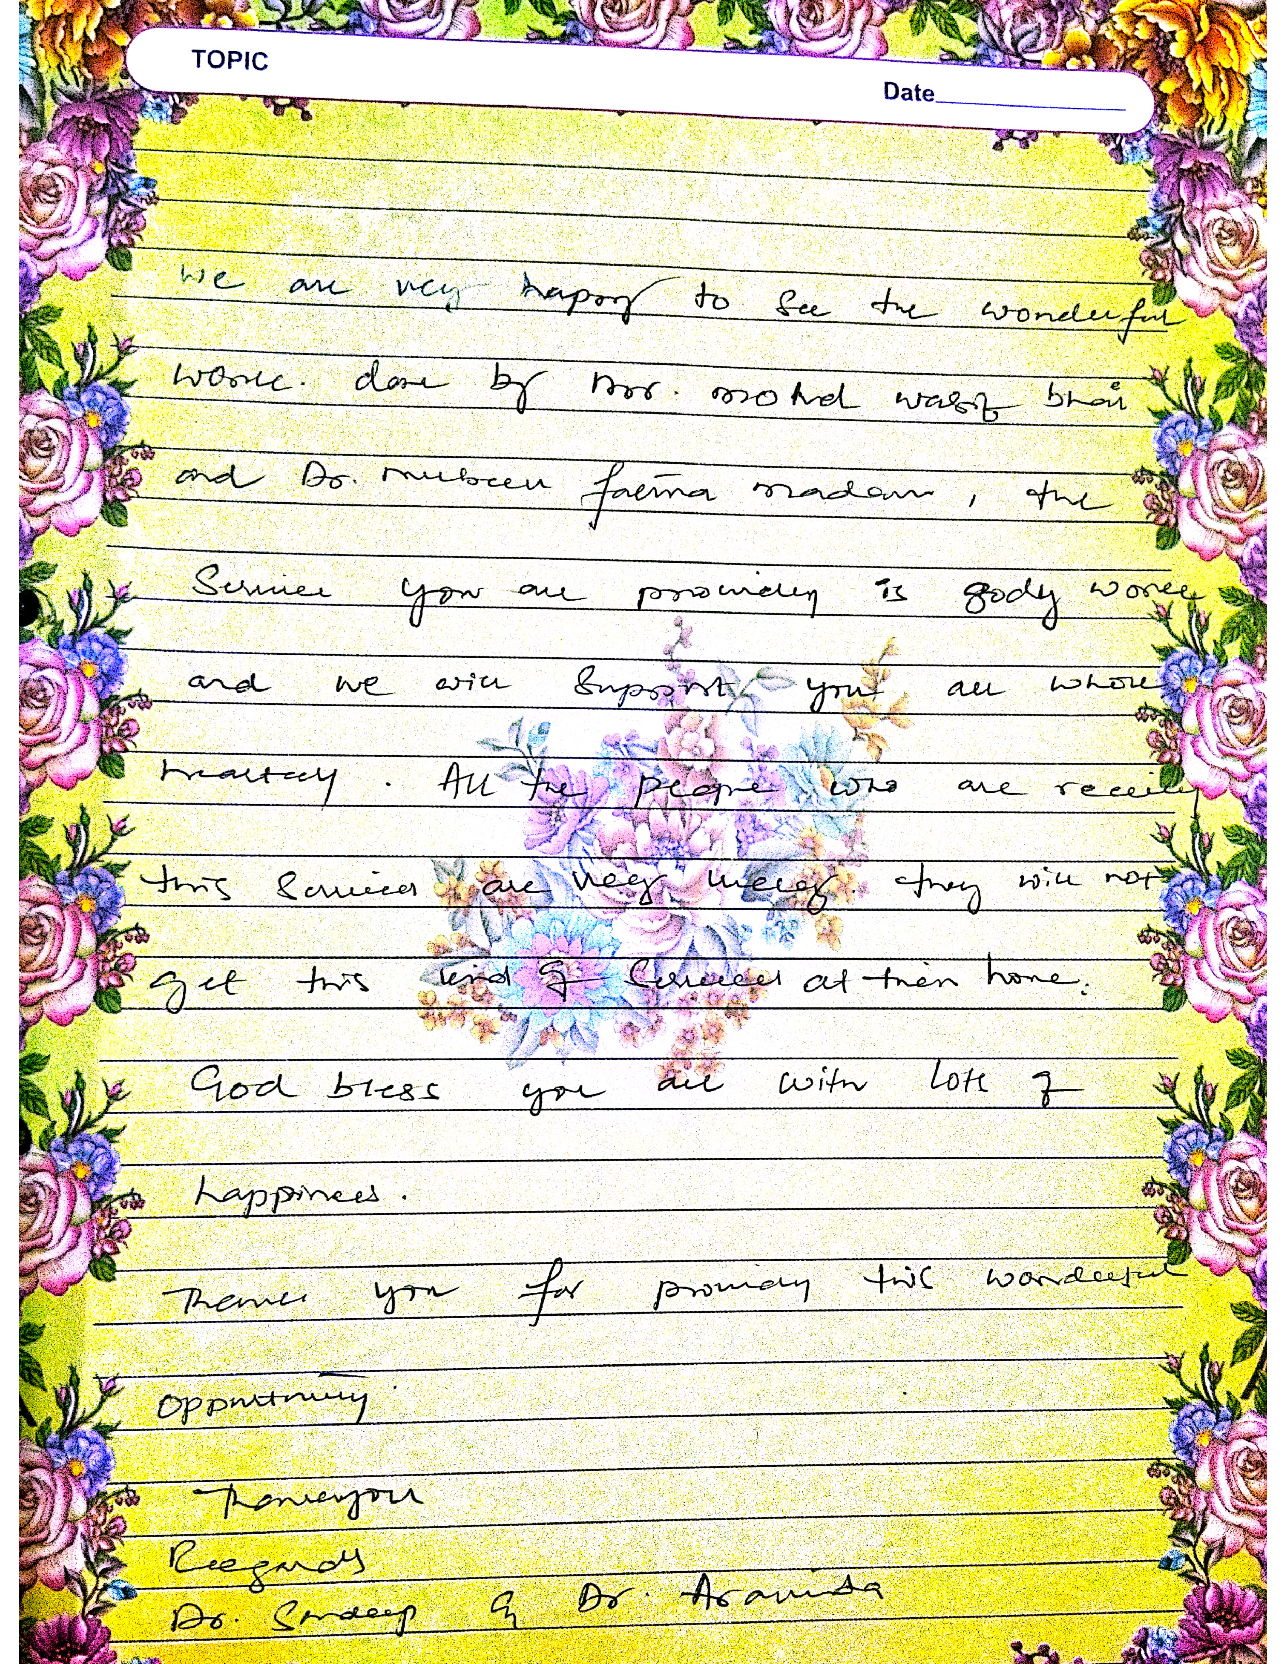 TOPIC
Date
We are very happy to see the wonderful
work. done by Mr. Mohd Wasif bhai
and Dr. Mubeen fatima madam, the
Services you are providing is godly work
and we will support you all whole
heartedly. All the people who are receiving
this services are very lucky they will not
get this kind of services at their home.
God bless you all with lots of
happiness.
Thanks you for providing this wonderful
opportunity.
Thankyou
Regards
Dr. Sandeep & Dr. Aravinda